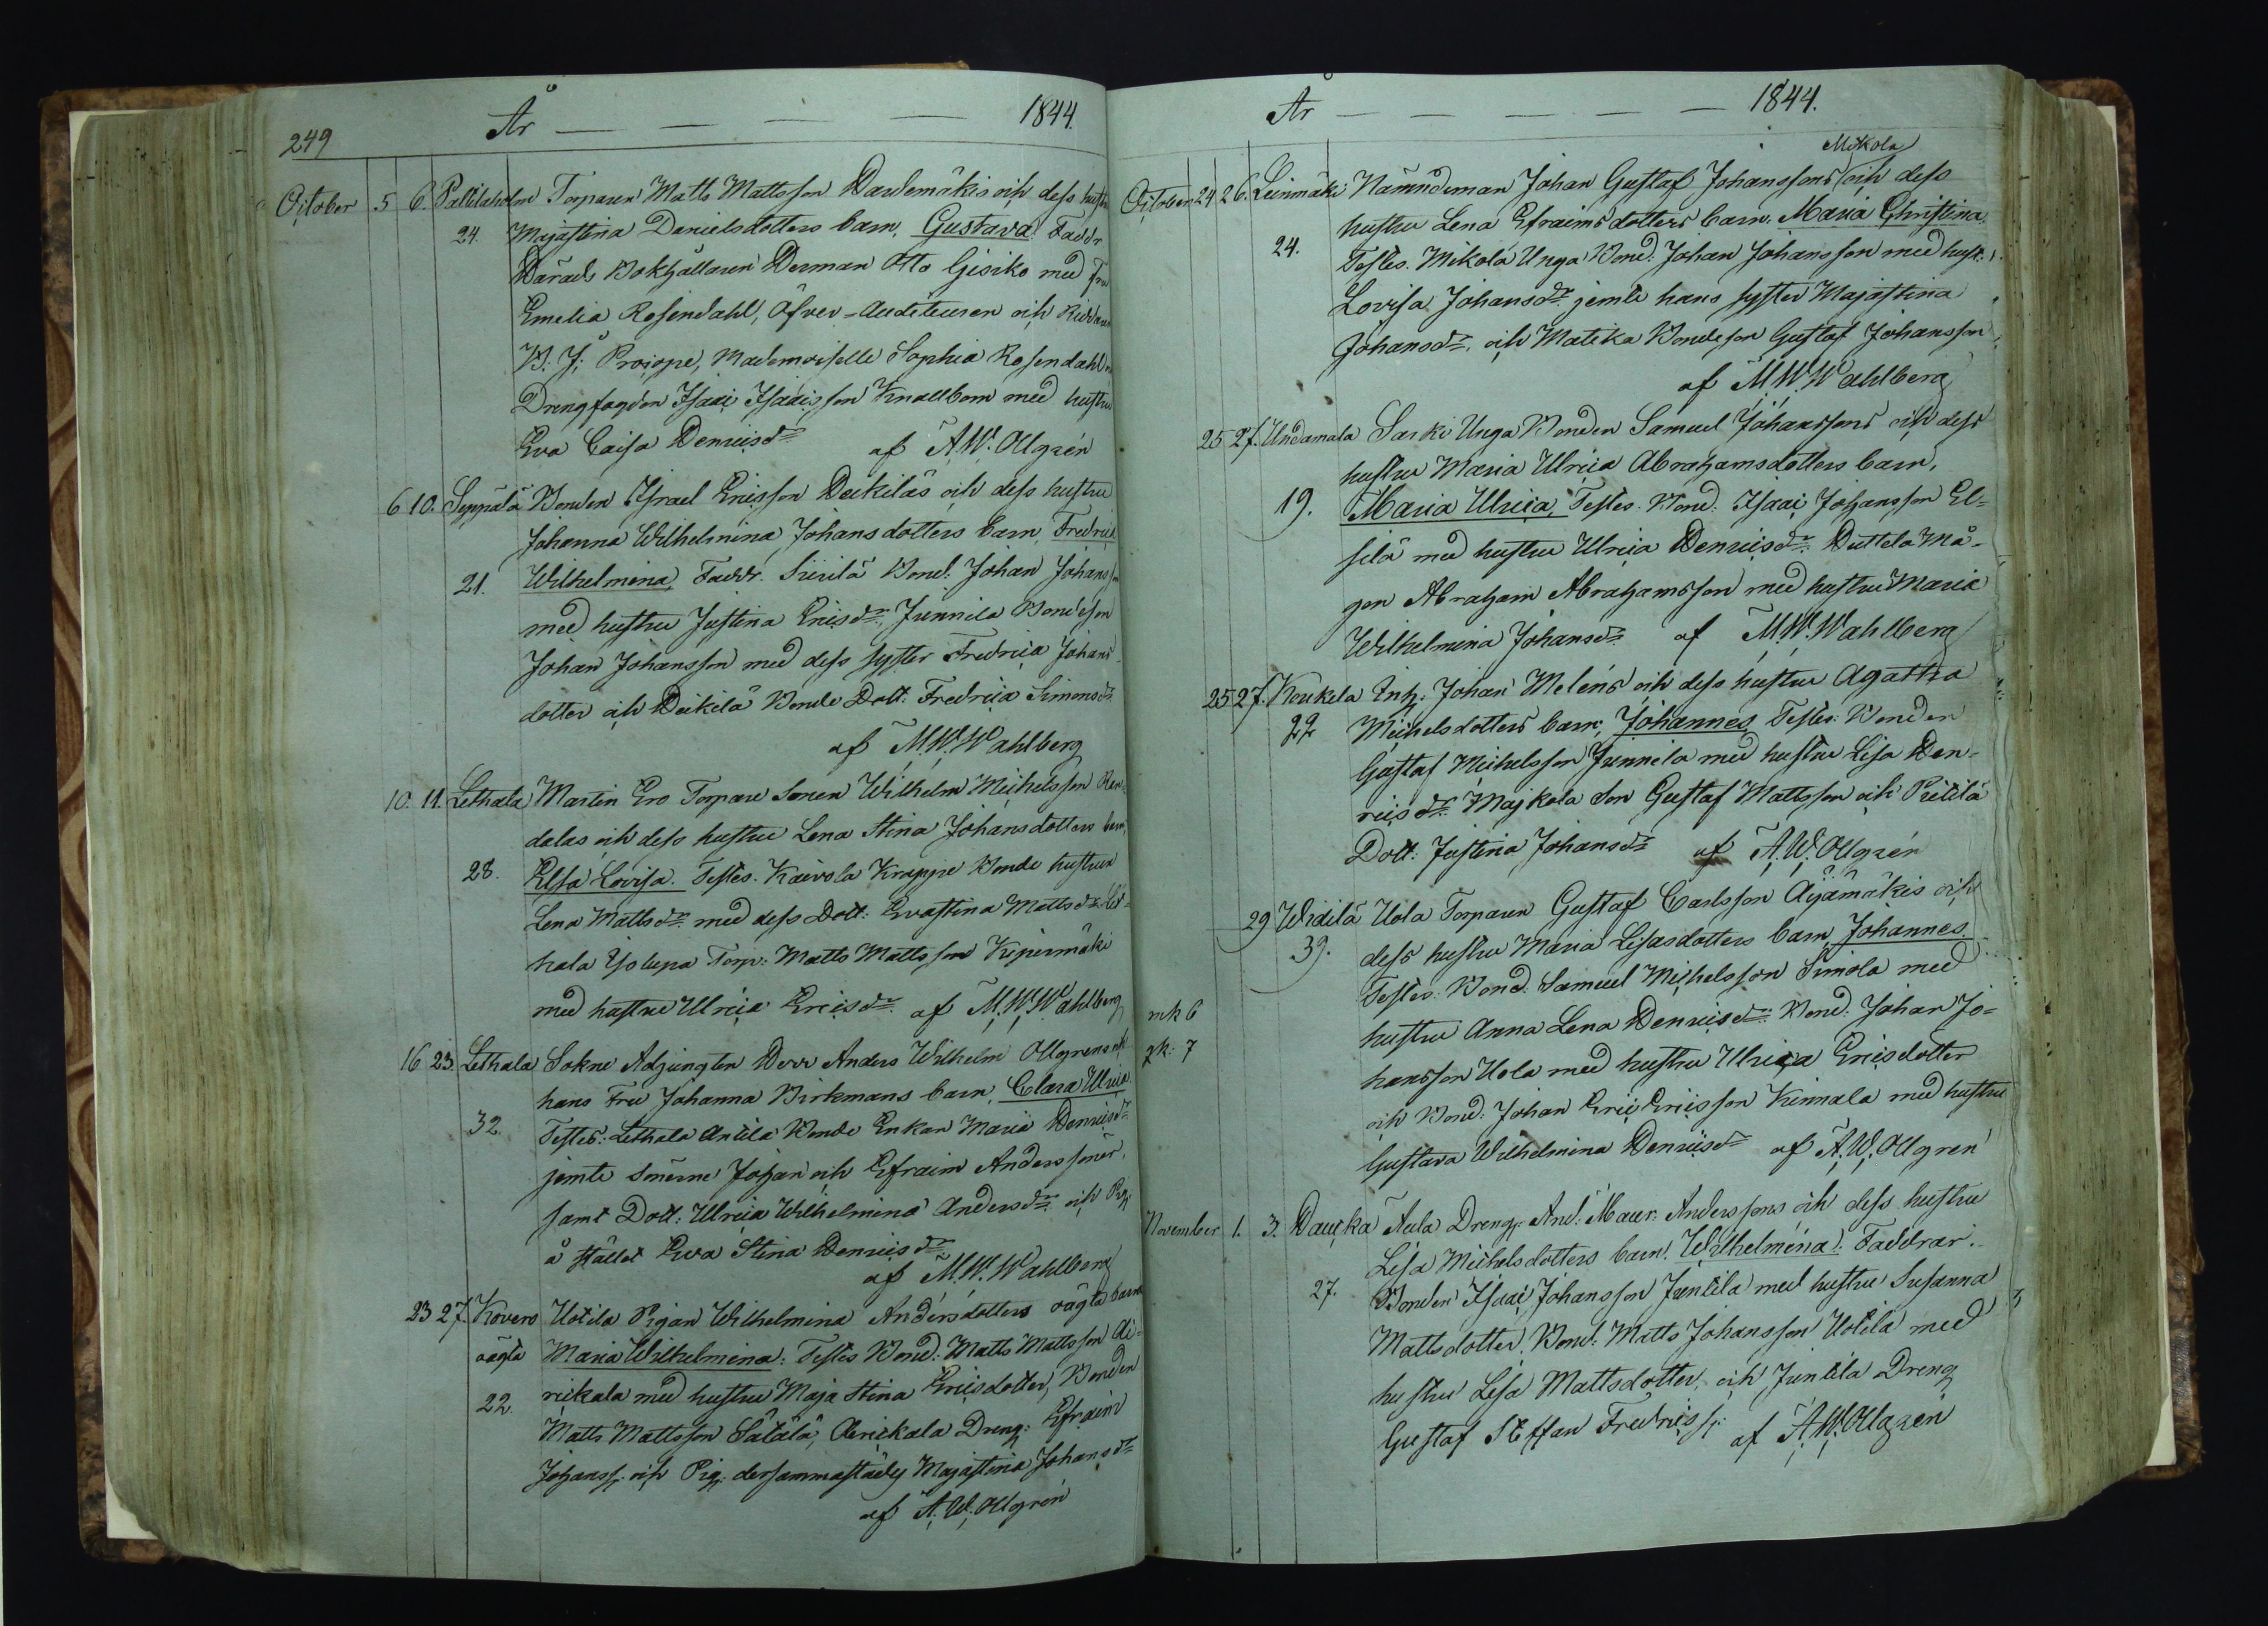 249
År — — — — 1844.
October 5 6. Pallilaholm Torparen Matts Mattsson Haulemäkis och dess hustru
24. Majastina Danielsdotters barn, Gustava. Faddr.
Härads Bokhållaren Herman Otto Gisiko med Fru
Emelia Rosendahl, Öfver-Auditeuren och Riddaren
B. J. Procopé, Mademoiselle Sophia Rosendahl
Drengfogden Isaac Isaacsson Knallbom med hustru
Eva Caisa Henricsdr af A.W. Ollgrén
6 10. Seppälä Bonden Israel Ericsson Heikiläs och dess hustru
Johanna Wilhelmina Johansdotters barn, Fredrica
21. Wilhelmina, Faddr. Sirilä Bond: Johan Johansson
med hustru Justina Ericsdr, Junnila Bondeson
Johan Johansson med dess syster Fredrica Johans
dotter och Heikilä Bonde Dott: Fredrica Simonsdr
af M.W. Wahlberg
10. 11. Lethala Martin Ero Torpare Sonen Wilhelm Michelsson Ran
dalas och dess hustru Lena Stina Johansdotters barn,
28. Elsa Lovisa. Testes. Kaivola Krappe Bonde hustrun
Lena Mattsdr med dess Dott: Evastina Mattsdr Let-
hala Yolupa Torp: Matts Mattsson Kipinmäki
med hustru Ulrica Ericsdr. af M.W. Wahlberg
16 23. Lethala Sokne Adjuncten Herr Anders Wilhelm Ollgrens och
hans Fru Johanna Birkmans barn, Clara Ulrica
32. Testes: Lethala Antila Bonde Enkan Maria Henricsdr
jemte sönerne Johan och Efraim Anderssöner,
samt Dott: Ulrica Wilhelmina Andersdr och Pig:
å stället Eva Stina Henricsdr
af M.W. Wahlberg
23 27. Kovero Uotila Pigan Wilhelmina Andersdotters oägta barn
oägta Maria Wilhelmina: Testes Bond: Matts Mattsson Ai-
22. rickala med hustru Maja Stina Ericsdotter, Bonden
Matts Mattsson Sälälä, Airickala Dreng: Efraim
Johanss: och Pig: dersammastädes Majastina Johansdr
af A.W. Ollgrén
År — — — — — 1844.
Mikola
October 24 26. Leinmäki Nämndeman Johan Gustaf Johanssons och dess
hustru Lena Efraimsdotters barn, Maria Christina.
24. Testes. Mikola Unga Bond: Johan Johansson med hust:
Lovisa Johansdr jemte hans syster Majastina
Johansdr, och Matika Bondeson Gustaf Johansson,
af M.W. Wahlberg
25 27. Undamala Sarki Unga Bonden Samuel Johanssons och dess
hustru Maria Ulrica Abrahamsdotters barn,
19. Maria Ulrica, Testes. Bond: Isaac Johansson El-
silä med hustru Ulrica Henricsdr. Huttela Må-
gen Abraham Abrahamsson med hustru Maria
Wilhelmina Johansdr af M.W. Wahlberg
25 27. Koukela Inh: Johan Meléns och dess hustru Agatha
22 Michelsdotters barn, Johannes Testes: Bonden
Gustaf Michelsson Junnila med hustru Lisa Hen-
ricsdr. Majkola Son Gustaf Mattsson och Pietilä
Dott: Justina Johansdr af A.W. Ollgrén
29 Widilä Uola Torparen Gustaf Carlsson Äyämäkis och
39. dess hustru Maria Lisasdotters barn, Johannes.
Testes: Bond: Samuel Michelsson Simola med
mk 6 hustru Anna Lena Henricsdr. Bond: Johan Jo-
qk: 7 hansson Uola med hustru Ulrica Ericsdotter
och Bond: Johan Eric Ericsson Kinnala med hustru
Gustava Wilhelmina Henricsdr af A.W. Ollgren
November 1. 3. Haucka Aula Dreng: And: Maur: Anderssons och dess hustru
Lisa Michelsdotters barn! Wilhelmina!. Faddrar.
27. Bonden Isaac Johansson Juntila med hustru Susanna
Mattsdotter. Bond: Matts Johansson Uotila med
hustru Lisa Mattsdotter, och Juntila Dreng
Gustaf Steffan Fredricss: af A.W. Ollgren